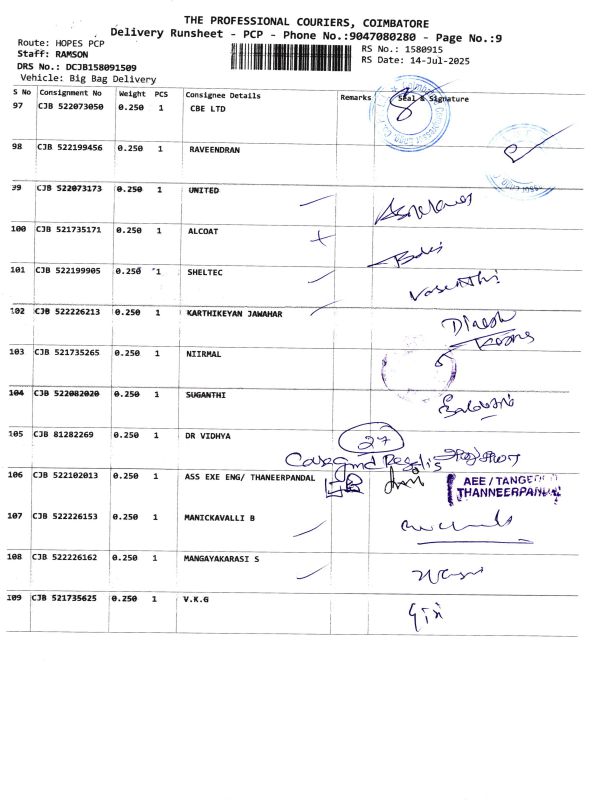 THE PROFESSIONAL COURIERS, COIMBATORE
Delivery Runsheet - PCP - Phone No.:9047080280 - Page No.:9
Route: HOPES PCP
RS No.: 1580915
Staff: RAMSON
RS Date: 14-Jul-2025
DRS No.: DCJB158091509
Vehicle: Big Bag Delivery
S No Consignment No Weight PCS Consignee Details Remarks Seal & Signature
97 CJB 522073050 0.250 1 CBE LTD
98 CJB 522199456 0.250 1 RAVEENDRAN
99 CJB 522073173 0.250 1 UNITED
100 CJB 521735171 0.250 1 ALCOAT
101 CJB 522199905 0.250 1 SHELTEC
Vasanthi
102 CJB 522226213 0.250 1 KARTHIKEYAN JAWAHAR
Dinesh
103 CJB 521735265 0.250 1 NIIRMAL
104 CJB 522082020 0.250 1 SUGANTHI
105 CJB 81282269 0.250 1 DR VIDHYA
27
106 CJB 522102013 0.250 1 ASS EXE ENG/ THANEERPANDAL
AEE / TANGEDCO
THANNEERPANDAL
107 CJB 522226153 0.250 1 MANICKAVALLI B
108 CJB 522226162 0.250 1 MANGAYAKARASI S
109 CJB 521735625 0.250 1 V.K.G
Giri